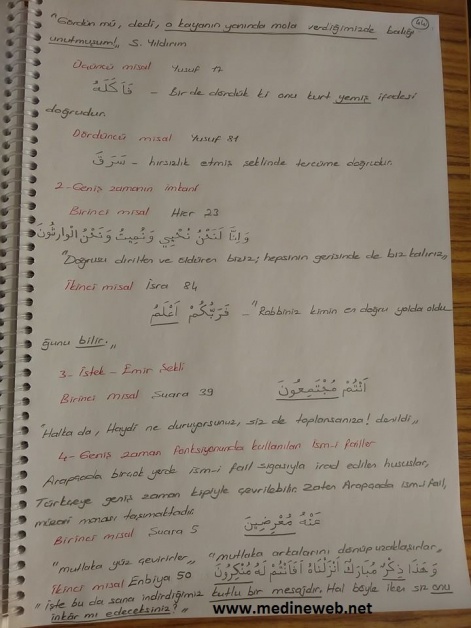 44
"Gördün mü, dedi, o kayanın yanında mola verdiğimizde balığı
unutmuşum!" S. Yıldırım
Üçüncü misal Yusuf 17
فَاَكَلَهُ - Bir de döndük ki onu kurt yemiş ifadesi
doğrudur.
Dördüncü misal Yusuf 81
سَرَقَ - hırsızlık etmiş şeklinde tercüme doğrudur.
2- Geniş zamanın imkanı
Birinci misal Hicr 23
وَاِنَّا لَنَحْنُ نُحْيِي وَنُمِيتُ وَنَحْنُ الْوَارِثُونَ
"Doğrusu dirilten ve öldüren biziz; hepsinin gerisinde de biz kalırız"
İkinci misal İsra 84
فَرَبُّكُمْ اَعْلَمُ - "Rabbiniz kimin en doğru yolda oldu
ğunu bilir."
3- İstek - Emir Şekli
Birinci misal Şuara 39 اَنْتُمْ مُجْتَمِعُونَ
"Halka da, Haydi ne duruyorsunuz, siz de toplansanıza! denildi"
4- Geniş zaman fonksiyonunda kullanılan ism-i failler
Arapçada birçok yerde ism-i fail sigasıyla irad edilen hususlar,
Türkçeye geniş zaman kipiyle çevrilebilir. Zaten Arapçada ism-i fail,
manası taşımaktadır.
Birinci misal Şuara 5 عَنْهُ مُعْرِضِينَ
"mutlaka yüz çevirirler" "mutlaka arkalarını dönüp uzaklaşırlar"
İkinci misal Enbiya 50 وَهَذَا ذِكْرٌ مُبَارَكٌ اَنْزَلْنَاهُ اَفَاَنْتُمْ لَهُ مُنْكِرُونَ
"İşte bu da sana indirdiğimiz kutlu bir mesajdır. Hal böyle iken siz onu
inkâr mı edeceksiniz?"
www.medineweb.net